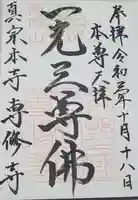 奉拝 令和三年十月十八日
本尊天拝
一光三尊佛
真宗本寺 専修寺